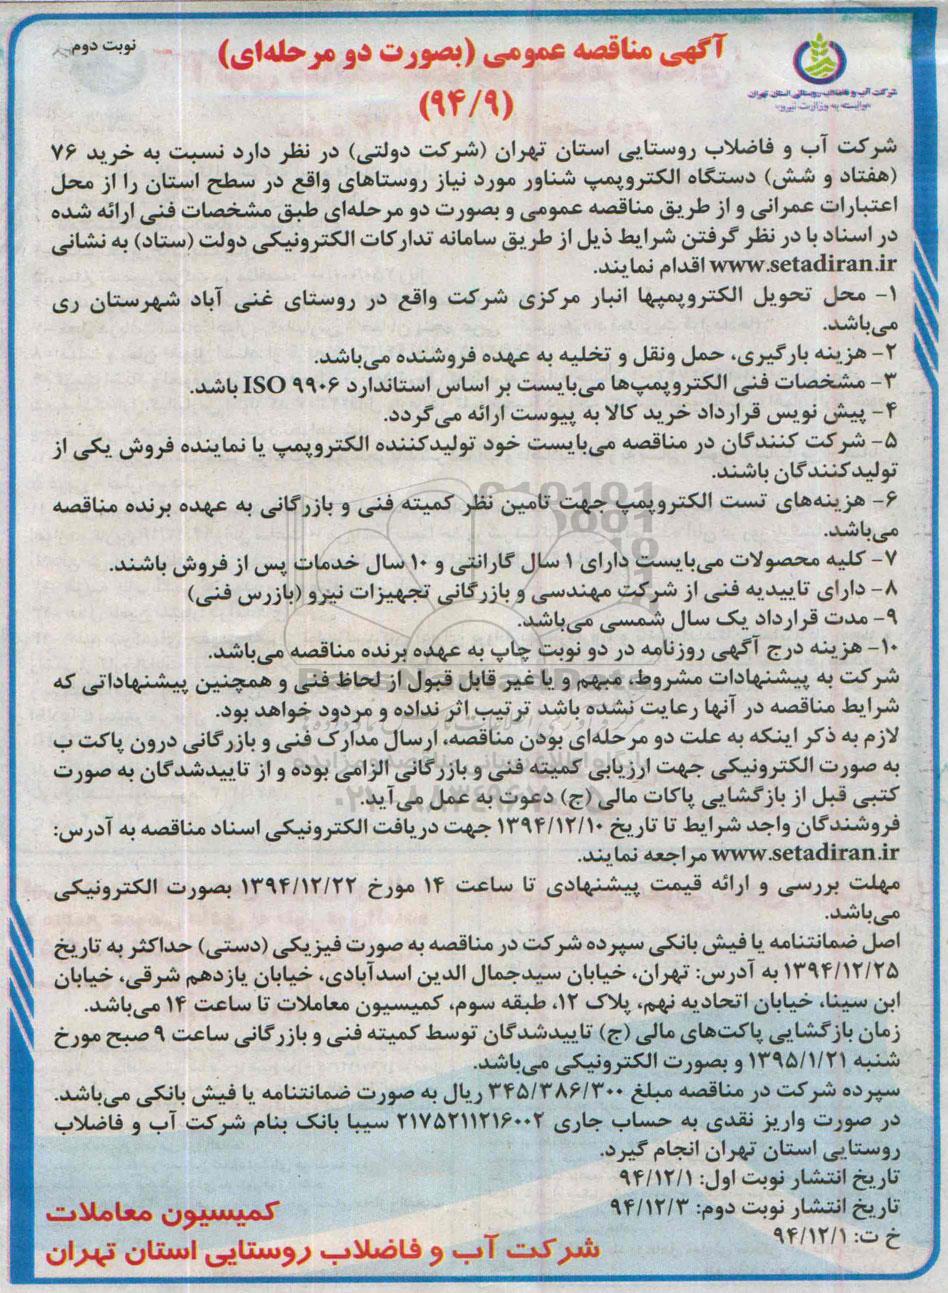 نوبت دوم
آگهی مناقصه عمومی (بصورت دو مرحله‌ای)
(۹۴/۹)
شرکت آب و فاضلاب روستایی استان تهران
«وابسته به وزارت نیرو»
شرکت آب و فاضلاب روستایی استان تهران (شرکت دولتی) در نظر دارد نسبت به خرید ۷۶
(هفتاد و شش) دستگاه الکتروپمپ شناور مورد نیاز روستاهای واقع در سطح استان را از محل
اعتبارات عمرانی و از طریق مناقصه عمومی و بصورت دو مرحله‌ای طبق مشخصات فنی ارائه شده
در اسناد با در نظر گرفتن شرایط ذیل از طریق سامانه تدارکات الکترونیکی دولت (ستاد) به نشانی
www.setadiran.ir اقدام نمایند.
۱- محل تحویل الکتروپمپها انبار مرکزی شرکت واقع در روستای غنی آباد شهرستان ری
می‌باشد.
۲- هزینه بارگیری، حمل ونقل و تخلیه به عهده فروشنده می‌باشد.
۳- مشخصات فنی الکتروپمپ‌ها می‌بایست بر اساس استاندارد ISO ۹۹۰۶ باشد.
۴- پیش نویس قرارداد خرید کالا به پیوست ارائه می‌گردد.
۵- شرکت کنندگان در مناقصه می‌بایست خود تولیدکننده الکتروپمپ یا نماینده فروش یکی از
تولیدکنندگان باشند.
۶- هزینه‌های تست الکتروپمپ جهت تامین نظر کمیته فنی و بازرگانی به عهده برنده مناقصه
می‌باشد.
۷- کلیه محصولات می‌بایست دارای ۱ سال گارانتی و ۱۰ سال خدمات پس از فروش باشند.
۸- دارای تاییدیه فنی از شرکت مهندسی و بازرگانی تجهیزات نیرو (بازرس فنی)
۹- مدت قرارداد یک سال شمسی می‌باشد.
۱۰- هزینه درج آگهی روزنامه در دو نوبت چاپ به عهده برنده مناقصه می‌باشد.
شرکت به پیشنهادات مشروط، مبهم و یا غیر قابل قبول از لحاظ فنی و همچنین پیشنهاداتی که
شرایط مناقصه در آنها رعایت نشده باشد ترتیب اثر نداده و مردود خواهد بود.
لازم به ذکر اینکه به علت دو مرحله‌ای بودن مناقصه، ارسال مدارک فنی و بازرگانی درون پاکت ب
به صورت الکترونیکی جهت ارزیابی کمیته فنی و بازرگانی الزامی بوده و از تاییدشدگان به صورت
کتبی قبل از بازگشایی پاکات مالی (ج) دعوت به عمل می‌آید.
فروشندگان واجد شرایط تا تاریخ ۱۳۹۴/۱۲/۱۰ جهت دریافت الکترونیکی اسناد مناقصه به آدرس:
www.setadiran.ir مراجعه نمایند.
مهلت بررسی و ارائه قیمت پیشنهادی تا ساعت ۱۴ مورخ ۱۳۹۴/۱۲/۲۲ بصورت الکترونیکی
می‌باشد.
اصل ضمانتنامه یا فیش بانکی سپرده شرکت در مناقصه به صورت فیزیکی (دستی) حداکثر به تاریخ
۱۳۹۴/۱۲/۲۵ به آدرس: تهران، خیابان سیدجمال الدین اسدآبادی، خیابان یازدهم شرقی، خیابان
ابن سینا، خیابان اتحادیه نهم، پلاک ۱۲، طبقه سوم، کمیسیون معاملات تا ساعت ۱۴ می‌باشد.
زمان بازگشایی پاکت‌های مالی (ج) تاییدشدگان توسط کمیته فنی و بازرگانی ساعت ۹ صبح مورخ
شنبه ۱۳۹۵/۱/۲۱ و بصورت الکترونیکی می‌باشد.
سپرده شرکت در مناقصه مبلغ ۳۴۵/۳۸۶/۳۰۰ ریال به صورت ضمانتنامه یا فیش بانکی می‌باشد.
در صورت واریز نقدی به حساب جاری ۲۱۷۵۲۱۱۲۱۶۰۰۲ سیبا بانک بنام شرکت آب و فاضلاب
روستایی استان تهران انجام گیرد.
تاریخ انتشار نوبت اول: ۹۴/۱۲/۱
تاریخ انتشار نوبت دوم: ۹۴/۱۲/۳
خ ت: ۹۴/۱۲/۱
کمیسیون معاملات
شرکت آب و فاضلاب روستایی استان تهران